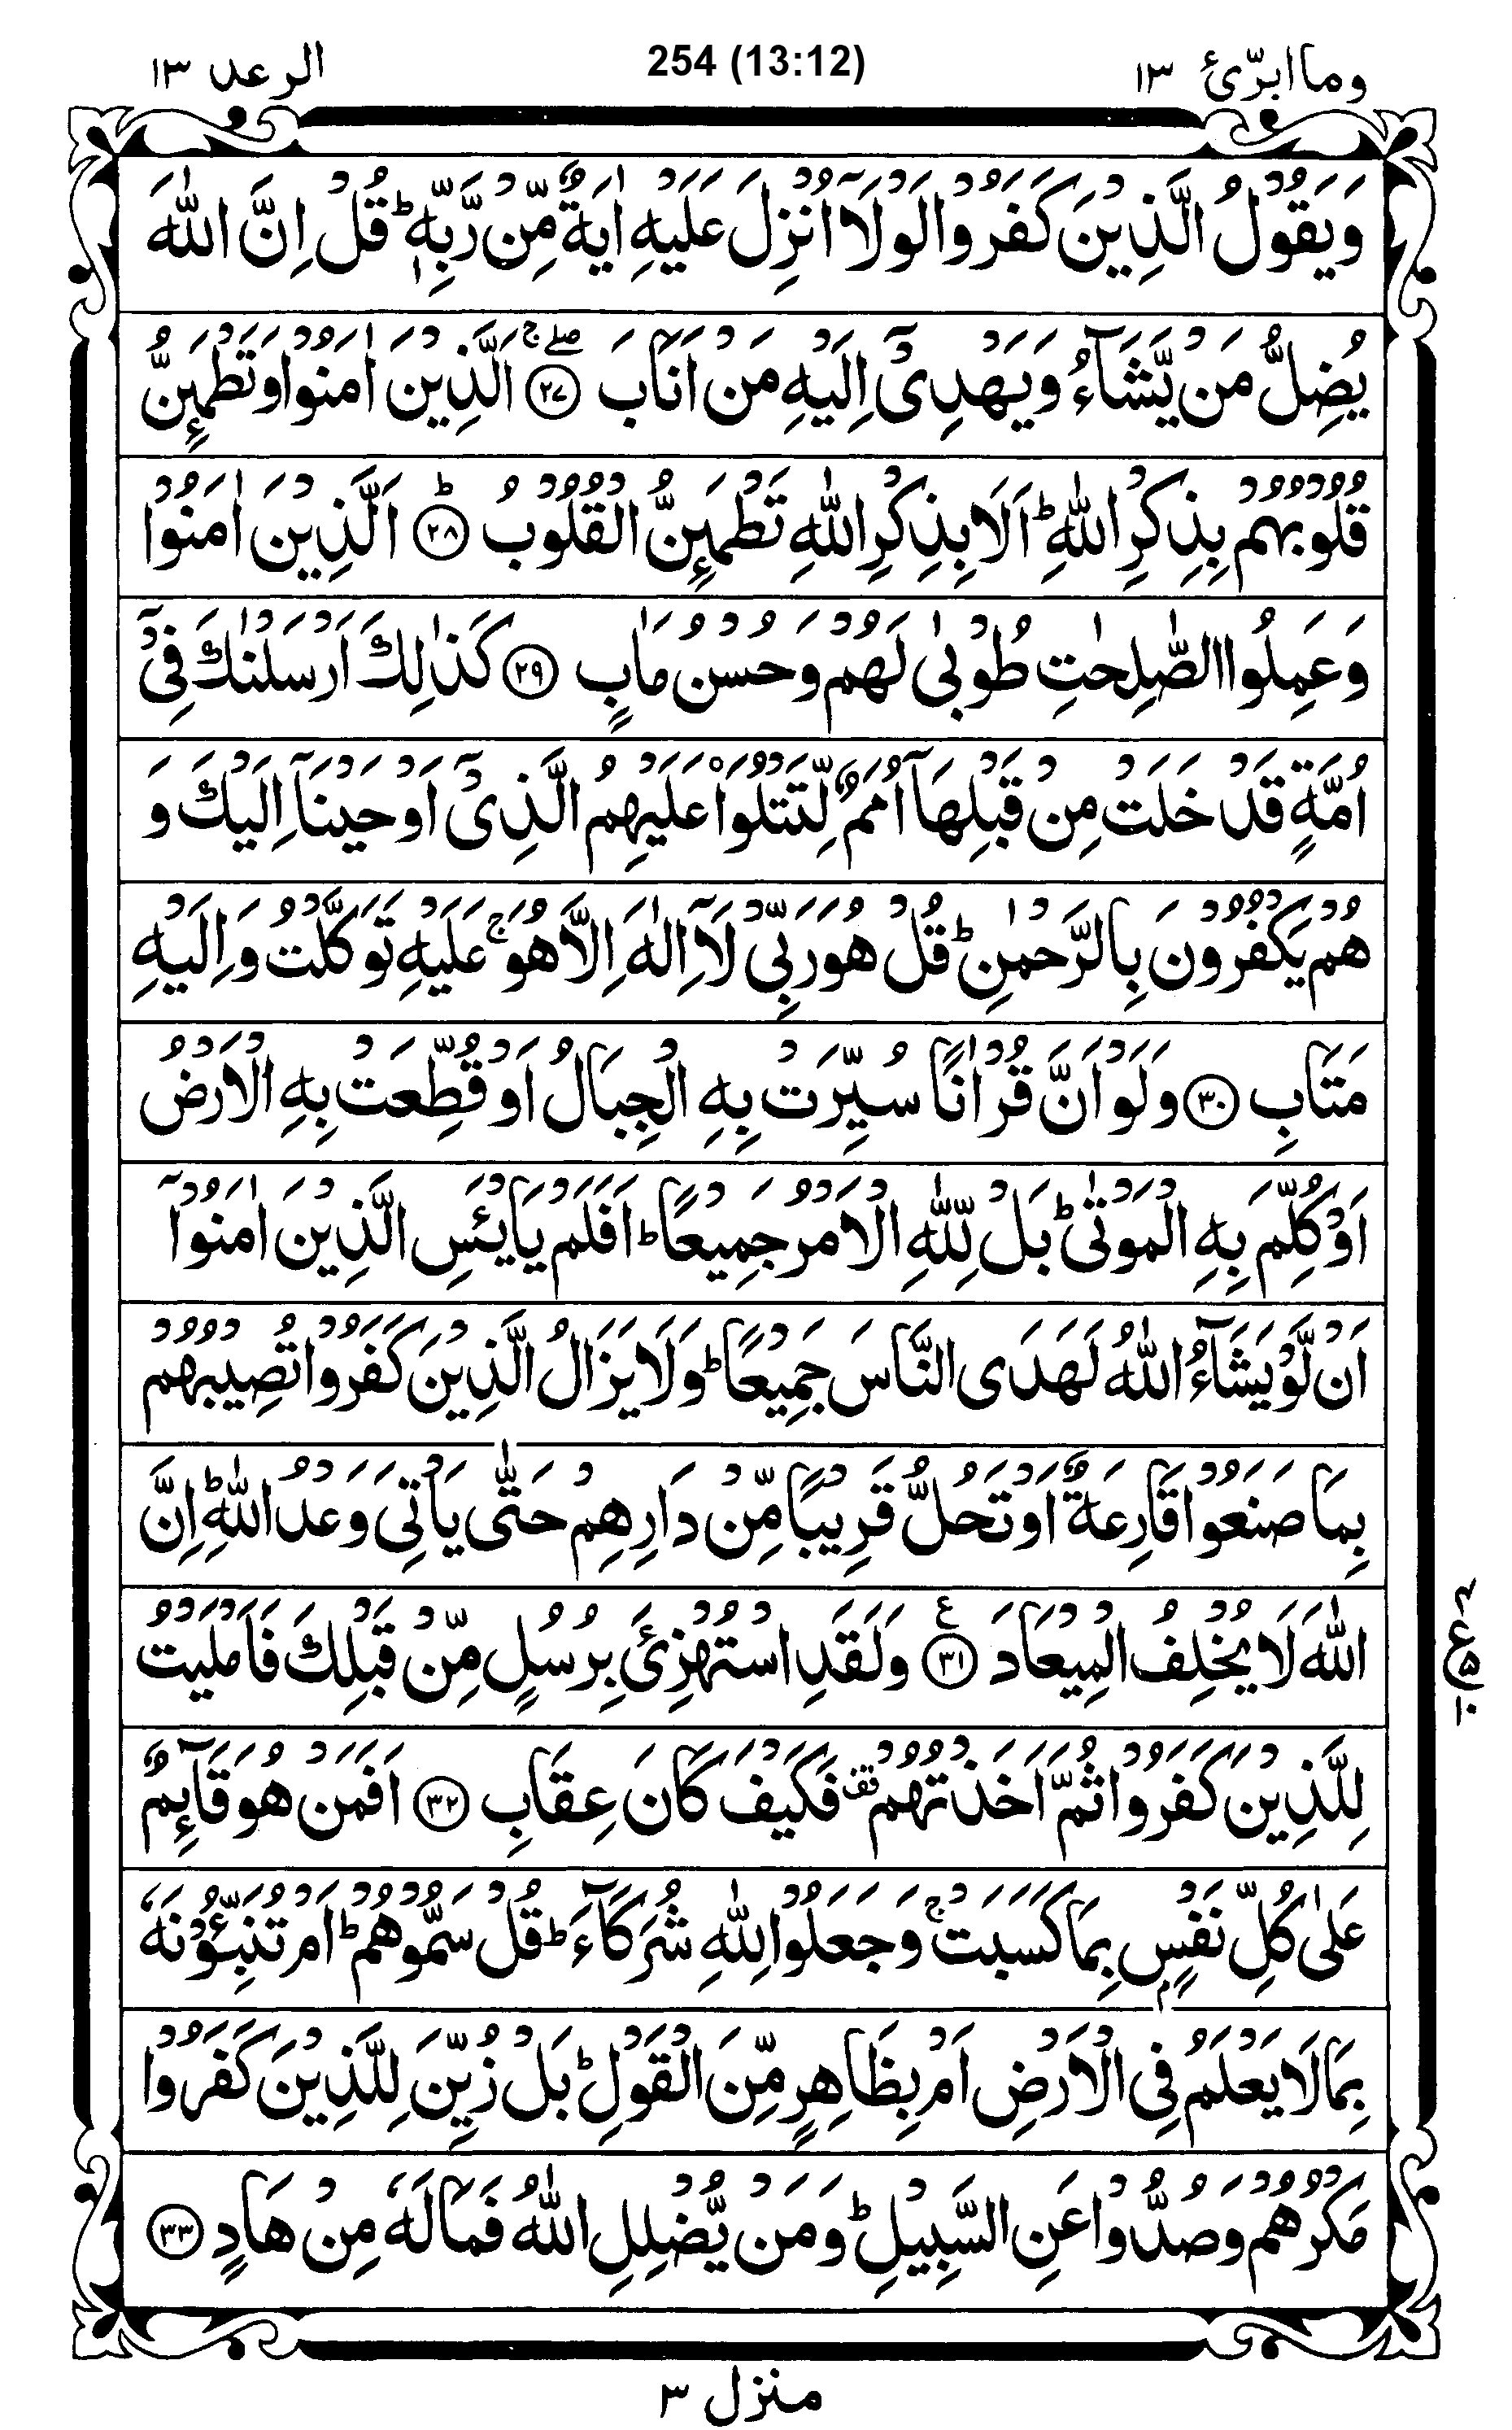 الرعد ١٣
254 (13:12)
وما ابرّئ ١٣
وَيَقُوْلُ الَّذِيْنَ كَفَرُوْا لَوْلَاۤ اُنْزِلَ عَلَيْهِ اٰيَةٌ مِّنْ رَّبِّهٖ ؕ قُلْ اِنَّ اللّٰهَ
يُضِلُّ مَنْ يَّشَآءُ وَيَهْدِىْۤ اِلَيْهِ مَنْ اَنَابَ ۖۚ ﴿٢٧﴾ اَلَّذِيْنَ اٰمَنُوْا وَتَطْمَئِنُّ
قُلُوْبُهُمْ بِذِكْرِ اللّٰهِ ؕ اَلَا بِذِكْرِ اللّٰهِ تَطْمَئِنُّ الْقُلُوْبُ ؕ ﴿٢٨﴾ اَلَّذِيْنَ اٰمَنُوْا
وَعَمِلُوا الصّٰلِحٰتِ طُوْبٰى لَهُمْ وَحُسْنُ مَاٰبٍ ﴿٢٩﴾ كَذٰلِكَ اَرْسَلْنٰكَ فِىْۤ
اُمَّةٍ قَدْ خَلَتْ مِنْ قَبْلِهَاۤ اُمَمٌ لِّتَتْلُوَا۟ عَلَيْهِمُ الَّذِىْۤ اَوْحَيْنَاۤ اِلَيْكَ وَ
هُمْ يَكْفُرُوْنَ بِالرَّحْمٰنِ ؕ قُلْ هُوَ رَبِّىْ لَاۤ اِلٰهَ اِلَّا هُوَ ۚ عَلَيْهِ تَوَكَّلْتُ وَاِلَيْهِ
مَتَابِ ﴿٣٠﴾ وَلَوْ اَنَّ قُرْاٰنًا سُيِّرَتْ بِهِ الْجِبَالُ اَوْ قُطِّعَتْ بِهِ الْاَرْضُ
اَوْ كُلِّمَ بِهِ الْمَوْتٰى ؕ بَلْ لِّلّٰهِ الْاَمْرُ جَمِيْعًا ؕ اَفَلَمْ يَايْـَٔسِ الَّذِيْنَ اٰمَنُوْۤا
اَنْ لَّوْ يَشَآءُ اللّٰهُ لَهَدَى النَّاسَ جَمِيْعًا ؕ وَلَا يَزَالُ الَّذِيْنَ كَفَرُوْا تُصِيْبُهُمْ
بِمَا صَنَعُوْا قَارِعَةٌ اَوْ تَحُلُّ قَرِيْبًا مِّنْ دَارِهِمْ حَتّٰى يَاْتِىَ وَعْدُ اللّٰهِ ؕ اِنَّ
اللّٰهَ لَا يُخْلِفُ الْمِيْعَادَ ﴿٣١﴾ ع وَلَقَدِ اسْتُهْزِئَ بِرُسُلٍ مِّنْ قَبْلِكَ فَاَمْلَيْتُ
لِلَّذِيْنَ كَفَرُوْا ثُمَّ اَخَذْتُهُمْ قف فَكَيْفَ كَانَ عِقَابِ ﴿٣٢﴾ اَفَمَنْ هُوَ قَآئِمٌ
عَلٰى كُلِّ نَفْسٍۭ بِمَا كَسَبَتْ ۚ وَجَعَلُوْا لِلّٰهِ شُرَكَآءَ ؕ قُلْ سَمُّوْهُمْ ؕ اَمْ تُنَبِّـُٔوْنَهٗ
بِمَا لَا يَعْلَمُ فِى الْاَرْضِ اَمْ بِظَاهِرٍ مِّنَ الْقَوْلِ ؕ بَلْ زُيِّنَ لِلَّذِيْنَ كَفَرُوْا
مَكْرُهُمْ وَصُدُّوْا عَنِ السَّبِيْلِ ؕ وَمَنْ يُّضْلِلِ اللّٰهُ فَمَا لَهٗ مِنْ هَادٍ ﴿٣٣﴾
منزل ٣